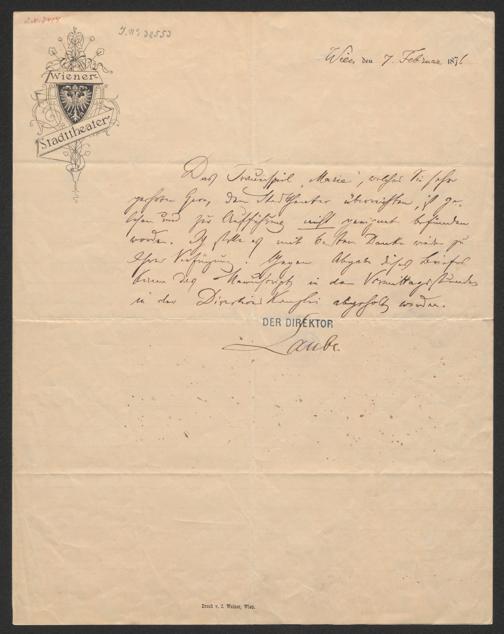 I.N. 32553
Wiener
Stadttheater
Wien, den 7. Februar 187
Das Trauerspiel „Marie“, welches Sie, sehr
geehrter Herr, dem Stadttheater überreichten, ist ge-
lesen und zur Aufführung nicht geeignet befunden
worden. Ich stelle es mit bestem Danke wieder zu
Ihrer Verfügung. Gegen Abgabe dieses Briefes
kann das Manuscript in den Vormittagsstunden
in der Direktions Kanzlei abgeholt werden.
DER DIREKTOR
Laube.
Druck v. J. Weiner, Wien.